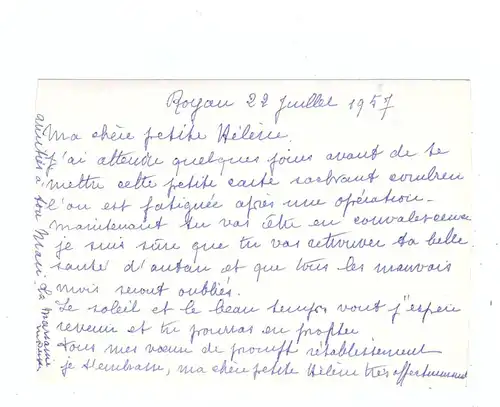 Royan 22 Juillet 1957
Ma chère petite Hélène.
J'ai attendu quelques jours avant de te
mettre cette petite carte sachant combien
l'on est fatiguée après une opération -
maintenant tu vas être en convalescence
je suis sûre que tu vas retrouver ta belle
santé d'antan et que tous les mauvais
mois seront oubliés.
Le soleil et le beau temps vont j'espère
revenir et tu pourras en profiter
Tous mes vœux de prompt rétablissement
je t'embrasse, ma chère petite Hélène très affectueusement
amitiés à ton Mari. Ta marraine